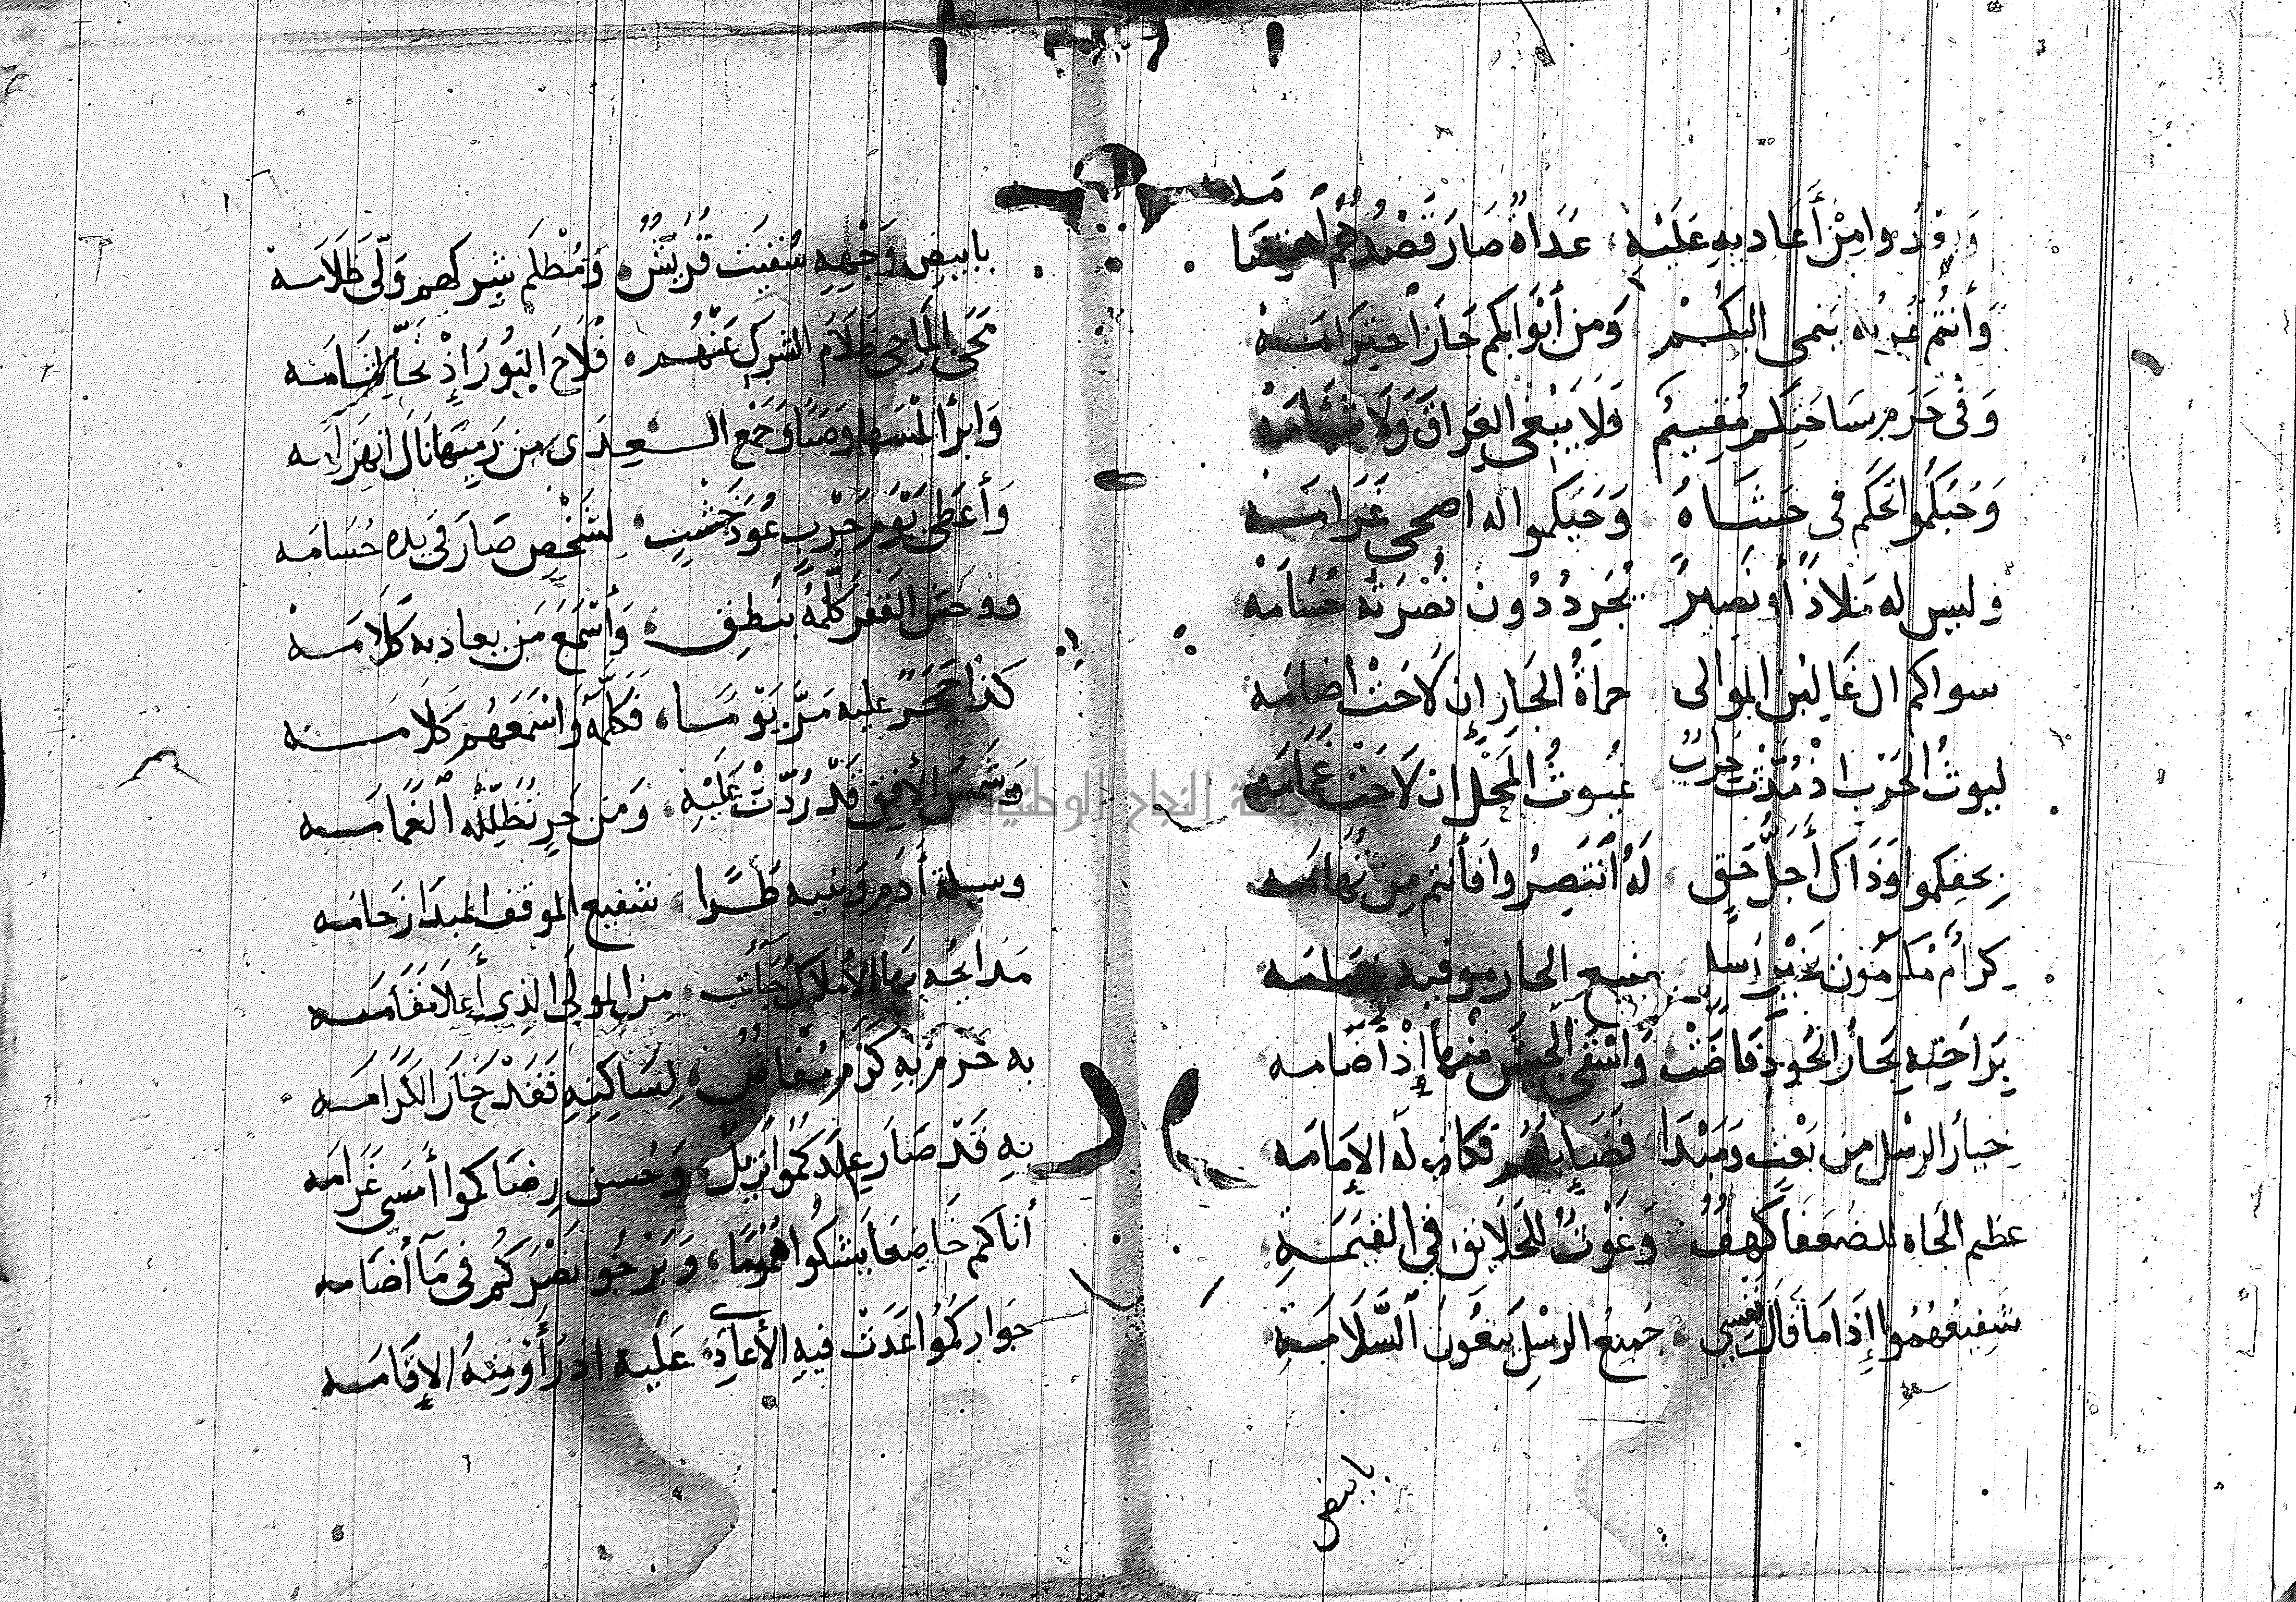 وَرُدُّوا مِنْ أَعَادِيهِ عَلَيْهِ عَدَاهُ صَارَ قَصْدُهُمُ
وَأَنْتُمْ عُرْبُه يَنمى اليكُمْ وَمن أبْوابكم حَازَ احتِرَامَهْ
وَفي حَرَمِ سَاحَتِكم مُقِيمٌ فَلا يَبْغي العِرَاقَ وَلَا شَئَامَهْ
وَحُبّكُموا تَحَكّم في حَشَاهُ وَحَبّكموا له اضحى غَرَامَه
وليس له مَلاذٌ أو نَصِيرٌ يُجَرِّدُ دُون نُصْرَتِهْ حُسَامَهْ
سواكم ال غَالِبْنِ الموالى حماةُ الجَارِ إن لَاحَتْ اضامَه
ليوثُ الحَرْب اذْ مُدَّتْ حِرابٌ غيوثُ المَحْلِ ان لَاحَت غَمَامَه
بِحقِكموا وَذَاكَ أجَلُّ حَقٍ لَهُ انْتَصِرُوا فَأنتُم مِن تِهَامَه
كِرَامٌ مُكرَمُون بخَيْرِ رُسلٍ منيع الجار
بِرَاحَتِهِ بِحَارُ الجُودِ فَاضَتْ وَاسْقَى الجَيْش مِنْهَا إِذْ أَضَامه
خِيَارُ الرسْلِ مِن بَعْثٍ وَمَبْدَا فَكَانَ لَه الإِمَامَه
عظيم الجَاه للضعفا كَهفٌ وَغَوْثٌ للخَلَايِقِ فِي القِيَمَةِ
شفيعهُمُوا إِذَا مَا قَالَ نَفْسِي جَمِيعُ الرسْلِ يبغُونَ السَّلَامَةِ
بابيض
بابيض وَجْهِهِ سُقِيَتْ قُرَيْشٌ وَمُظْلَم شِركهم وَلّى ظَلَامَه
مَحَى المَاحِي ظَلَامَ الشرك عَنْهُم فَلَاحَ النُورُ إِذْ نَحَّا لثَامَه
وَابرا لمْسهَا وَصَبًا وَجَمْع العِدَى مِن رَمْيِهَا نَالَ انهِزَامَه
وَأعطَى يَوْم حَرْبٍ عُودَ خَشْبٍ لشَخْصٍ صَارَ في يده حُسَامَه
ووحش القَفر كَلّمَهُ بنُطقٍ وَأسْمَعَ مَن يعاديه كَلَامَه
كَذا حَجَرٌ عليه مَرَّ يَوْمًا فَكَلَّمَهُ وَاسْمَعَهُم كَلامَه
وَشَمْسُ الأُفقِ قَدْ رُدّتْ عَلَيْهِ وَمن حَرٍ تُظَلِّلُه الغَمَامَه
وسيلة أدم وبنيه طُرًا شفيع الموقف المبدا زحامَه
مَدايحُه بها الأملاك جَاءَت مِن المولَى الذي أَعلَا مَقَامَه
به حَرَم بِهِ كَرَم مُفَاضٌ لِسَاكِنِهِ فَقَدْ حَازَ الكَرَامَه
بهِ قَدْ صَارَ عبدكُموا نَزِيلٌ وَحُسن رِضَاكموا أمسَى غَرَامَه
أتاكم خَاضِعًا يَشكُوا هُمُومًا وَيَرْجُوا نَصْرَكُم فِي مَا أضَامَه
جَوَاركُمُوا عَدَتْ فِيهِ الأَعَادِي عَلَيه اذ رَأَوْ مِنهُ الإِقَامَه
جامعة النجاح الوطنية